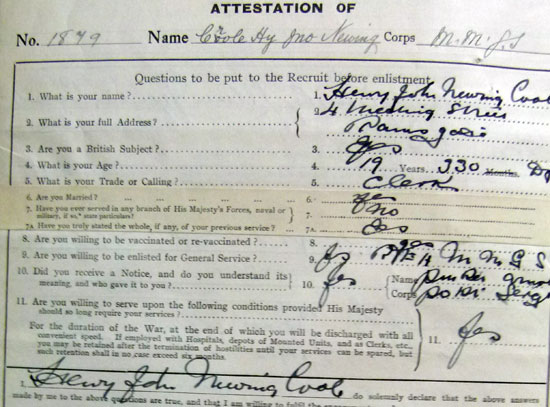 ATTESTATION OF
No. 1879 Name Coole Hy Jno Newing Corps M.M.G.S
Questions to be put to the Recruit before enlistment.
1. What is your name? 1. Henry John Newing Coole
2. What is your full Address? 2. 4
Ramsgate
3. Are you a British Subject? 3. Yes
4. What is your Age? 4. 19 Years 330 Months
5. What is your Trade or Calling? 5. Clerk
6. Are you Married? 6.
7. Have you ever served in any branch of His Majesty's Forces, naval or 7. no
military, if so,* state particulars?
7A. Have you truly stated the whole, if any, of your previous service? 7A.
8. Are you willing to be vaccinated or re-vaccinated? 8. yes
9. Are you willing to be enlisted for General Service? 9. M M G S
10. Did you receive a Notice, and do you understand its 10. Yes Name
meaning, and who gave it to you? Corps
11. Are you willing to serve upon the following conditions provided His Majesty
should so long require your services?
For the duration of the War, at the end of which you will be discharged with all
convenient speed. If employed with Hospitals, depots of Mounted Units, and as Clerks, etc., 11. Yes
you may be retained after the termination of hostilities until your services can be spared, but
such retention shall in no case exceed six months.
I, Henry John Newing Coole do solemnly declare that the above answers
made by me to the above questions are true, and that I am willing to fulfil the